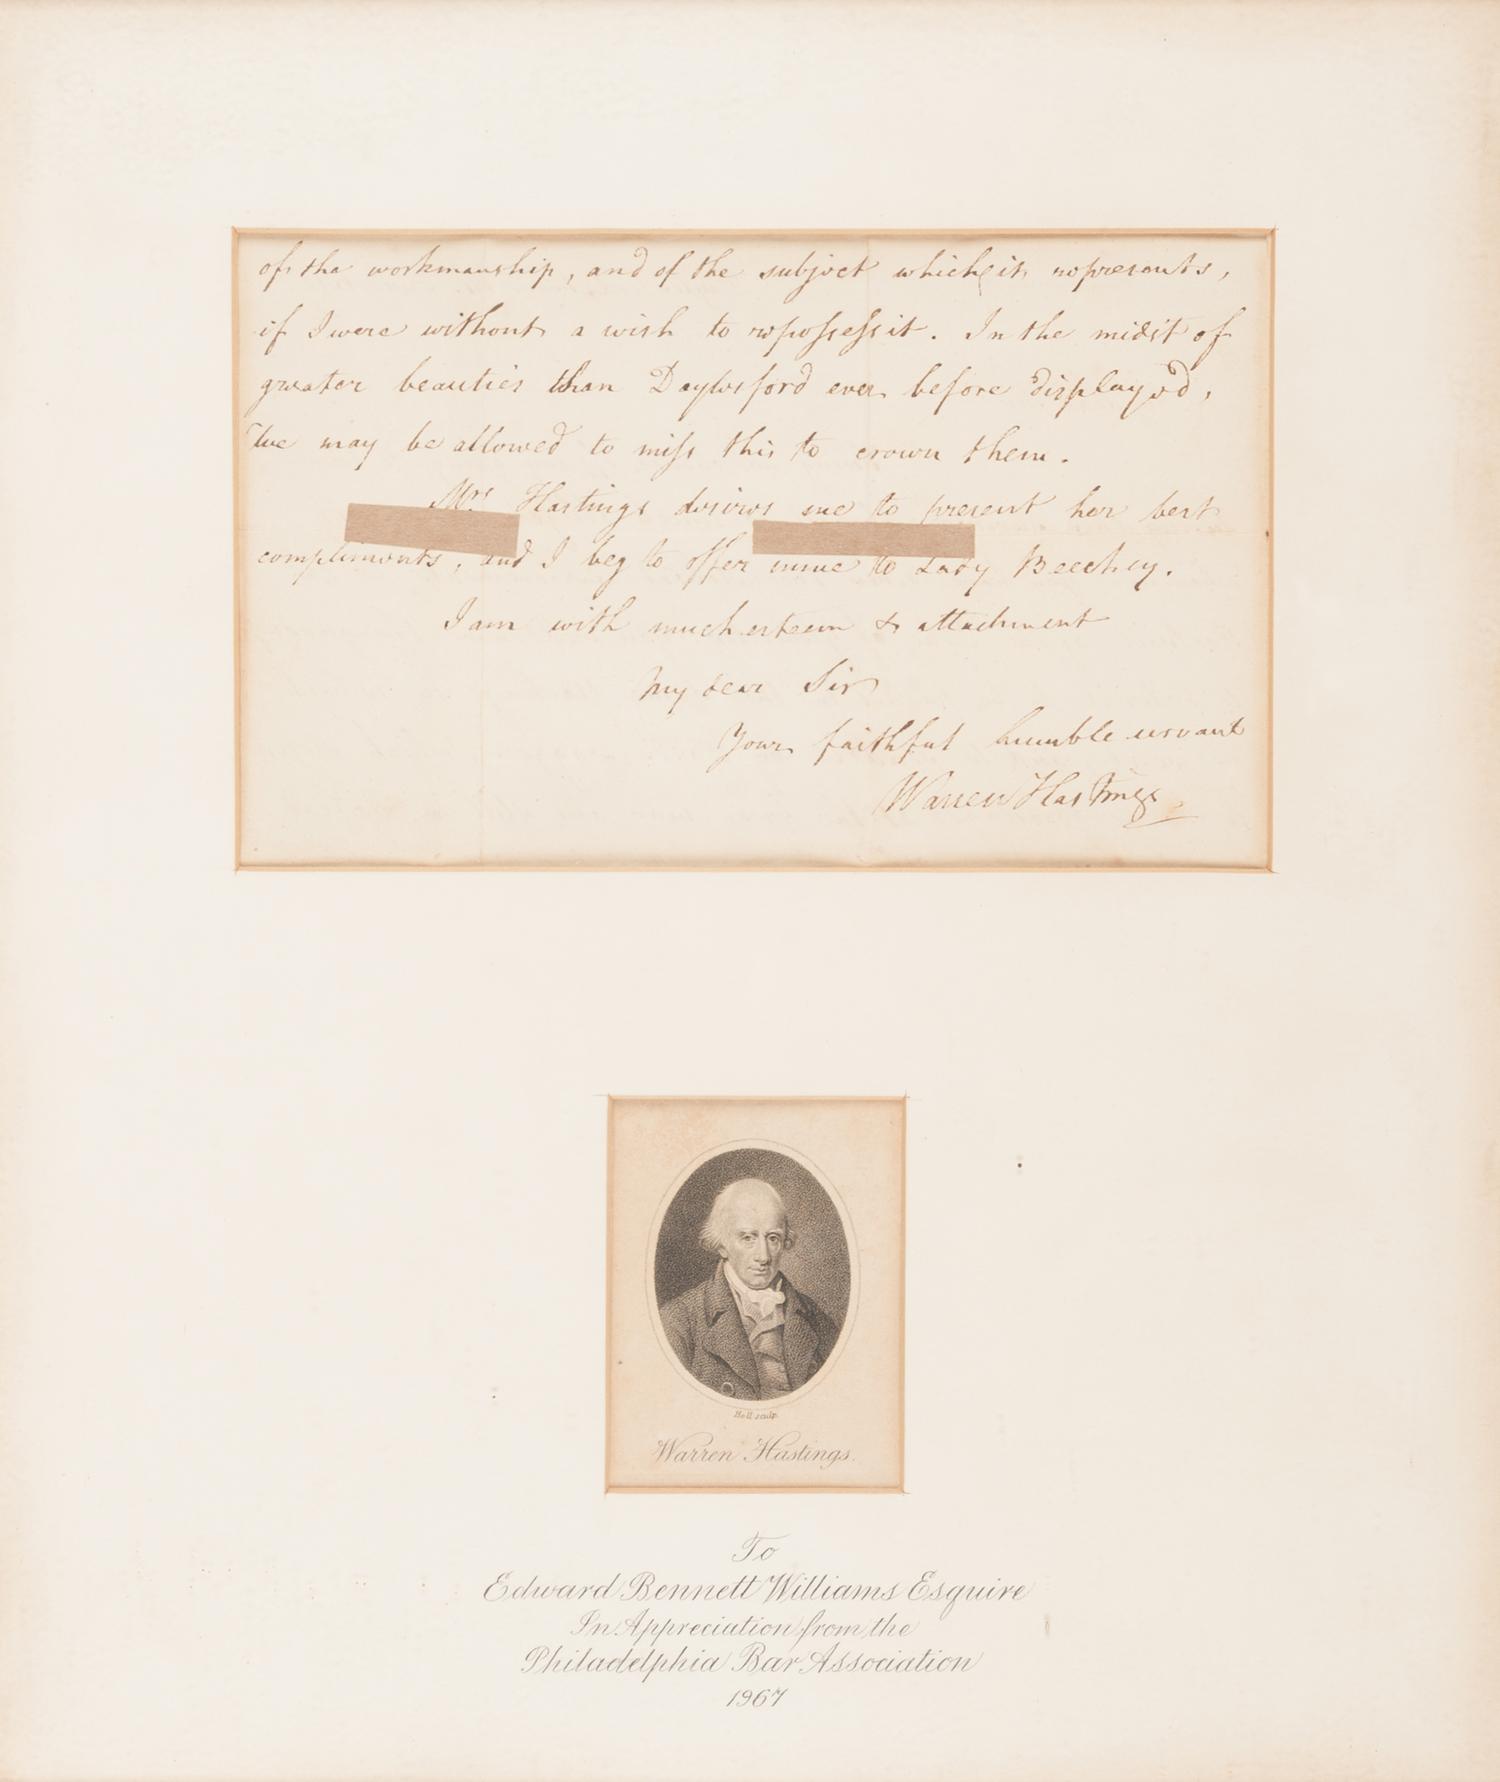 of the workmanship, and of the subject which it represents,
if I were without a wish to repossess it. In the midst of
greater beauties than Daylesford ever before display'd,
We may be allowed to miss this to crown them.
Mrs Hastings desires me to present her best
compliments, and I beg to offer mine to Lady Beechey.
I am with much esteem & attachment
My dear Sir
Your faithful humble servant
Warren Hastings
Holl sculp.
Warren Hastings.
To
Edward Bennett Williams Esquire
In Appreciation from the
Philadelphia Bar Association
1967